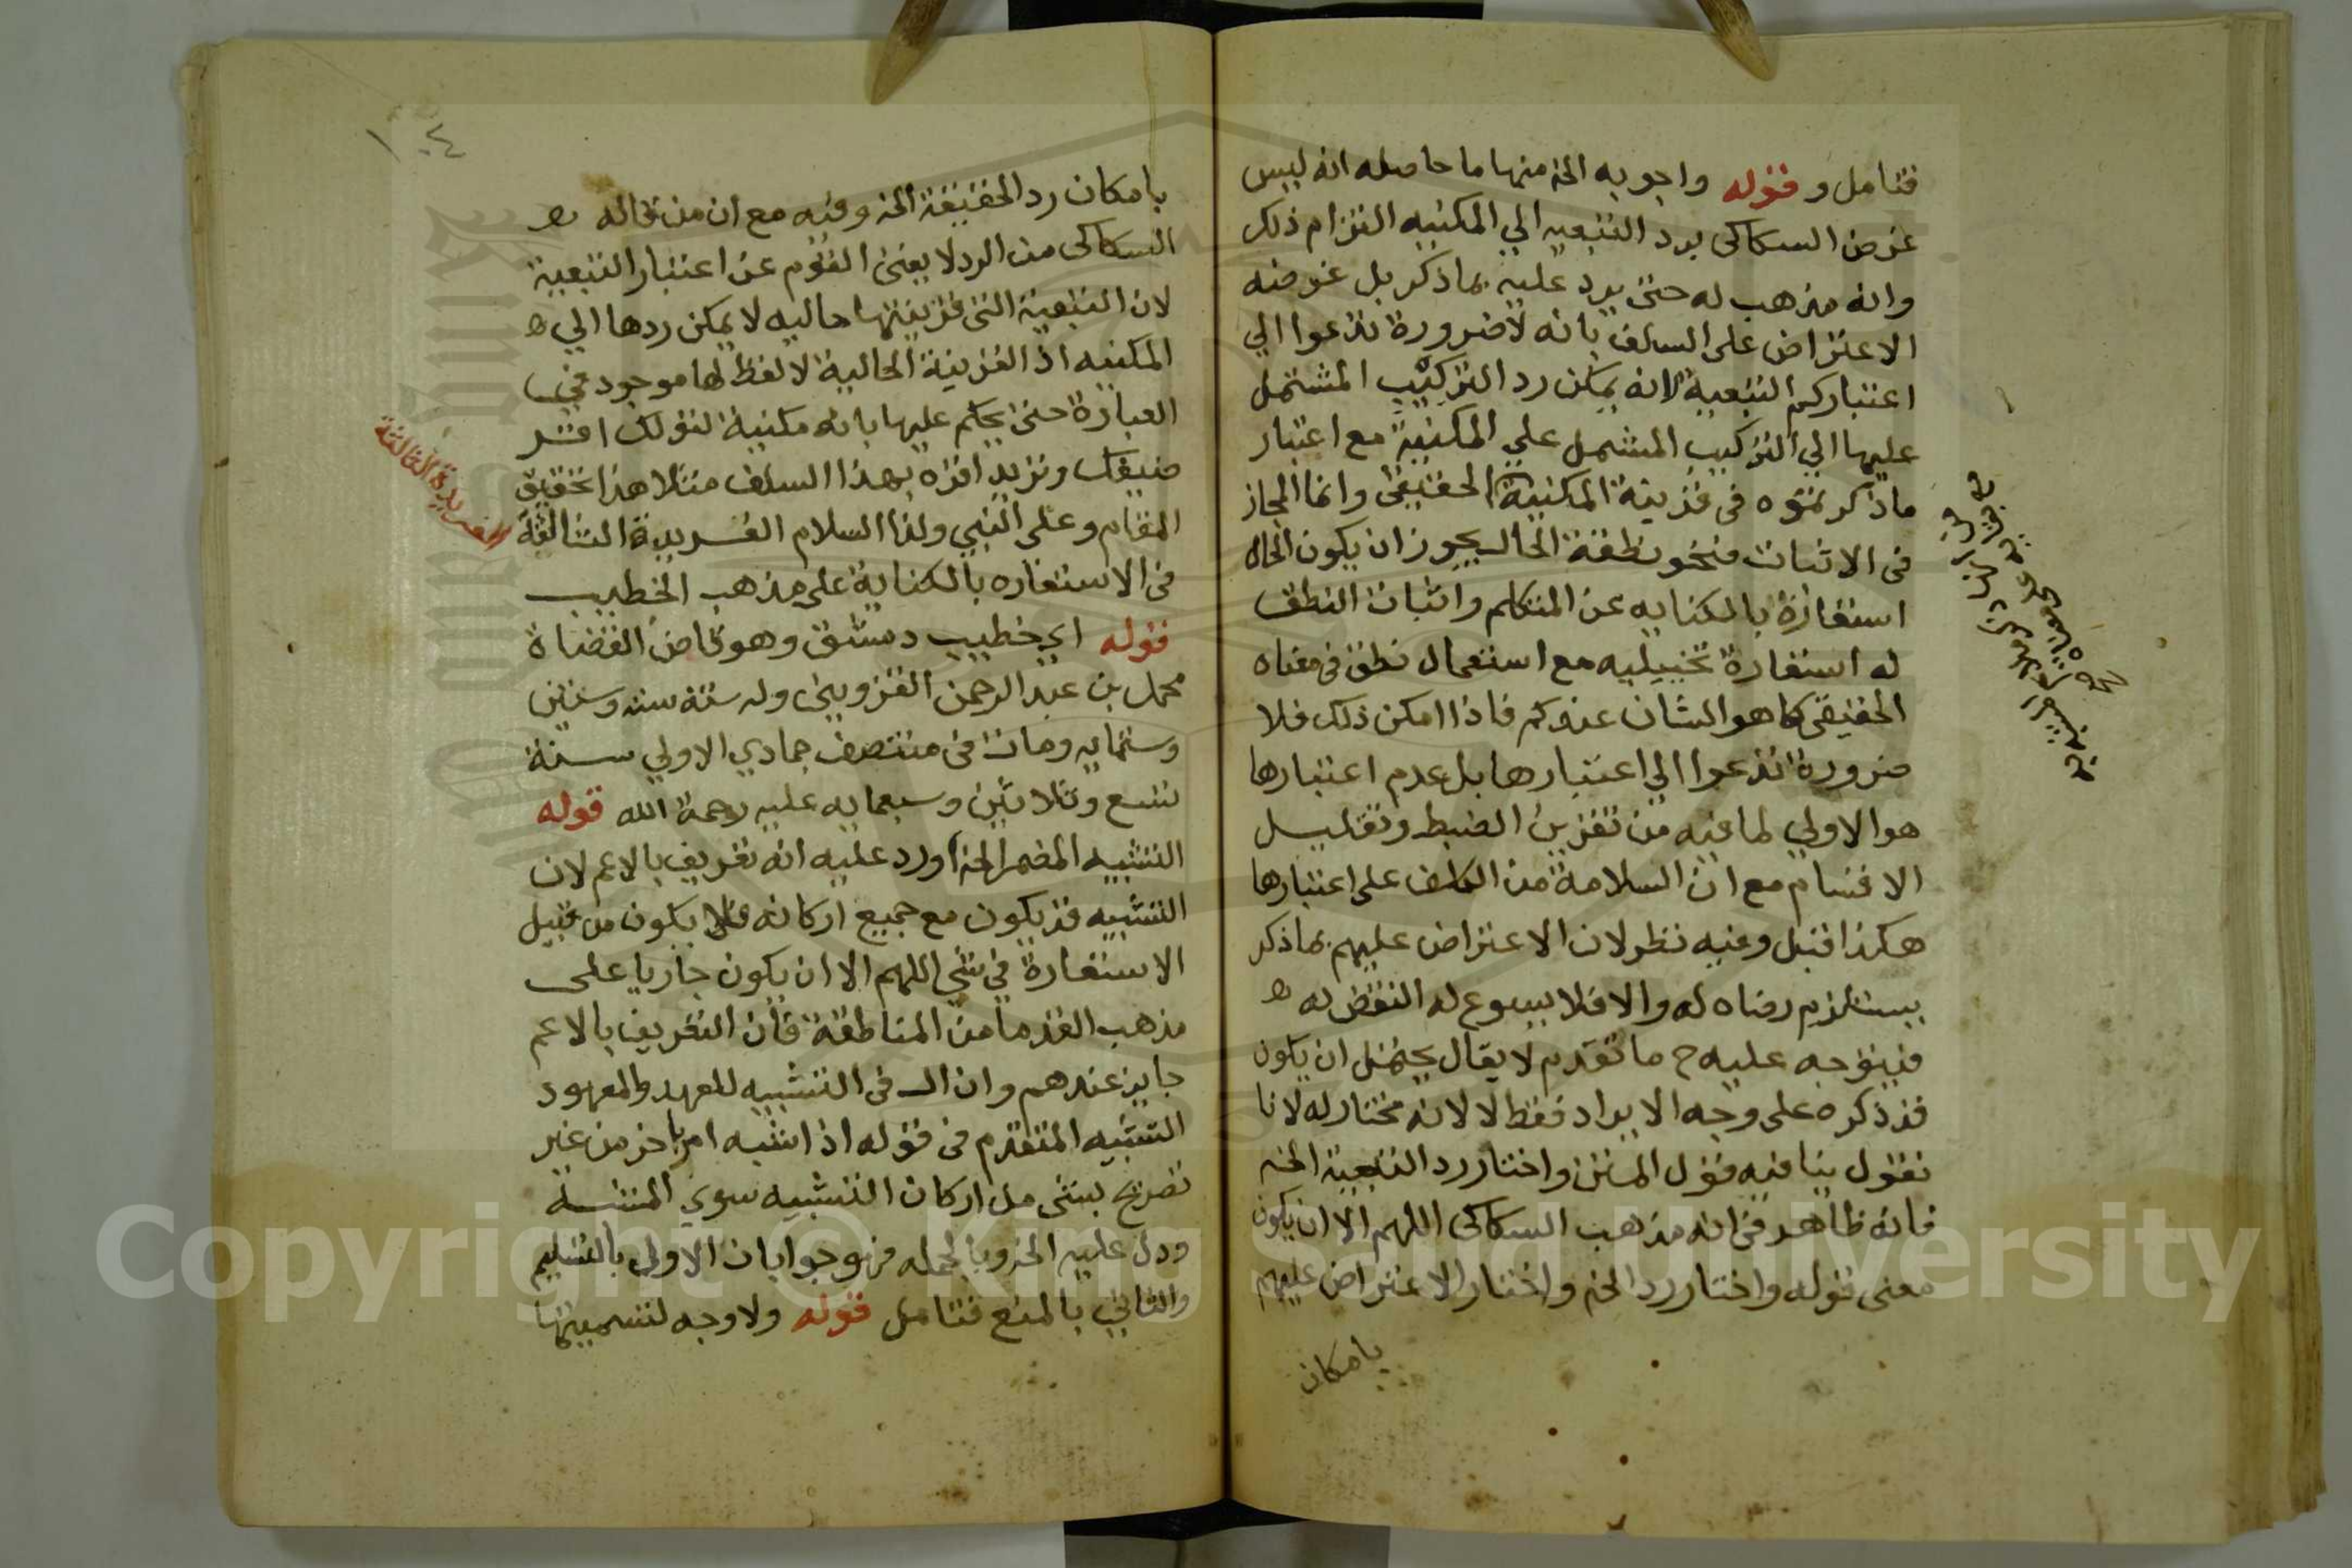 فتامل وقوله واجوبه الخ منها ما حاصله انه ليس
غرض السكاكي برد التبعيه الي المكنيه التزام ذلك
وانه مذهب له حتى يرد عليه بما ذكر بل غرضه
الاعتراض على السلف بانه لا ضرورة تدعوا الي
اعتباركم التبعية لانه يمكن رد التركيب المشتمل
عليها الي التركيب المشتمل علي المكنية مع اعتبار
ما ذكرتموه في قرينة المكنية الحقيقي وانما المجاز
في الاثبات فنحو نطقت الحال يجوز ان يكون الحال
استعارة بالكنايه عن المتكلم واثبات النطق
له استعارة تخييليه مع استعمال نطق في معناه
الحقيقي كما هو الشان عندكم فاذا امكن ذلك فلا
ضرورة تدعوا الي اعتبارها بل عدم اعتبارها
هو الاولي لما فيه من تقريب الضبط وتقليل
الاقسام مع ان السلامة من الكلف على اعتبارها
هكذا قيل وفيه نظر لان الاعتراض عليهم بما ذكر
يستلزم رضاه له والا فلا يسوع له النقض به ه
فيتوجه عليه ح ما تقدم لا يقال يحتمل ان يكون
قد ذكره على وجه الايراد فقط لا لانه مختار له لانا
نقول ينافيه قول المتن واختار رد التبعية الخ
فانه ظاهر في انه مذهب السكاكي اللهم الا ان يكون
معنى قوله واختار رد الخ واختار الاعتراض عليهم
بامكان
١٠٤
بامكان رد الحقيقة الخ وفيه مع ان من قاله ه
السكاكي من الرد لا يعنى القوم عن اعتبار التبعية
لان التبعية التي قرينتها حاليه لا يمكن ردها الي ه
المكنيه اذ القرينة الحالية لا لفظ لها موجود في
العبارة حتى يحكم عليها بانه مكنية لقولك اقتر
ضيفك وتريد اقره بهذا السلف مثلا هذا تحقيق
المقام وعلى النبي ولنا السلام الفريدة الثالثة
الفريدة الثالثة
في الاستعاره بالكناية على مذهب الخطيب
قوله اي خطيب دمشق وهو قاضي القضاة
محمد بن عبد الرحمن القزويني ولد سنة ستة وستين
وستمايه ومات في منتصف جمادي الاولي سنة
تسع وثلاثين وسبعمايه عليه رحمة الله قوله
التشبيه المضمر الخ اورد عليه انه تعريف بالاعم لان
التشبيه قد يكون مع جميع اركانه فلا يكون من قبيل
الاستعارة في شي اللهم الا ان يكون جاريا على
مذهب القدما من المناطقة فان التعريف بالاعم
جايز عندهم وان ال في التشبيه للعهد والمعهود
التشبيه المتقدم في قوله اذا شبه امر باخر من غير
تصريح بشي من اركان التشبيه سوي المشبه
ودل عليه الخ وبالجمله فهو جوابان الاولي بالتسليم
والثاني بالمنع فتامل قوله ولا وجه لتسميتها
Copyright © King Saud University